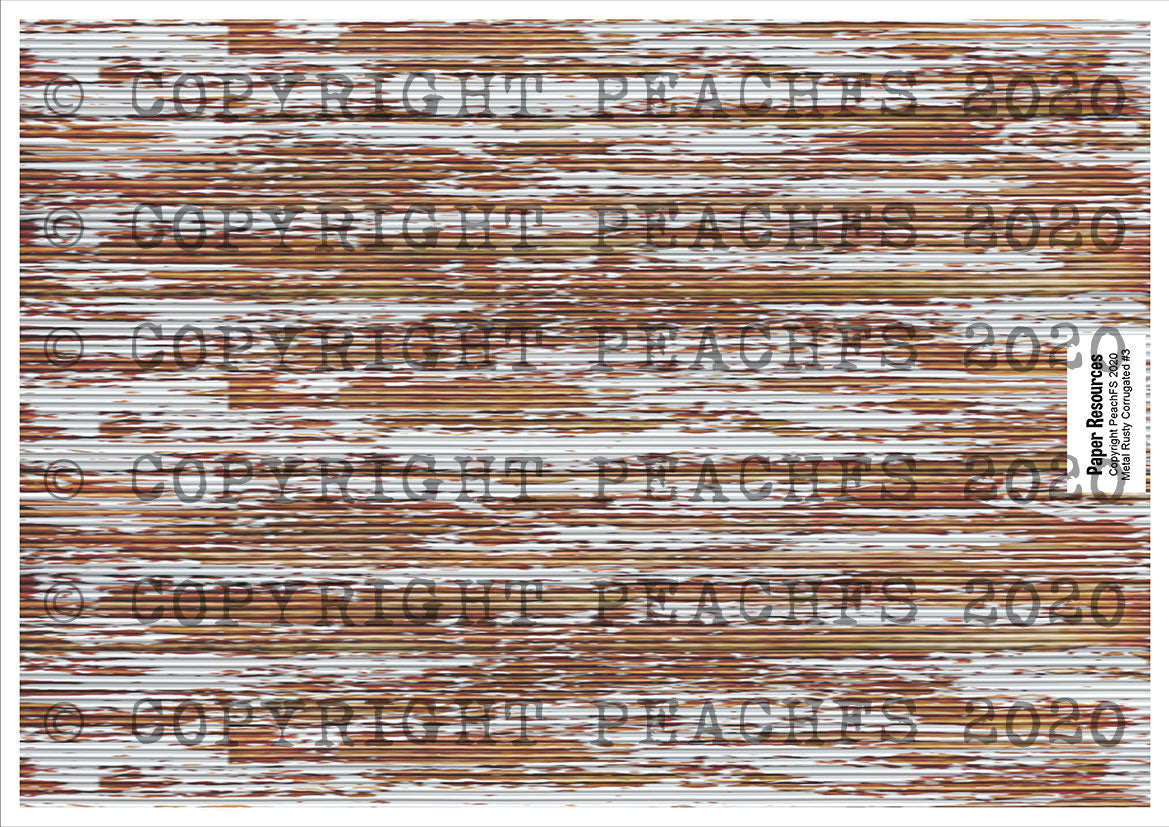 © COPYRIGHT PEACHFS 2020
© COPYRIGHT PEACHFS 2020
© COPYRIGHT PEACHFS 2020
© COPYRIGHT PEACHFS 2020
© COPYRIGHT PEACHFS 2020
© COPYRIGHT PEACHFS 2020
Paper Resources
Copyright PeachFS 2020
Metal Rusty Corrugated #3